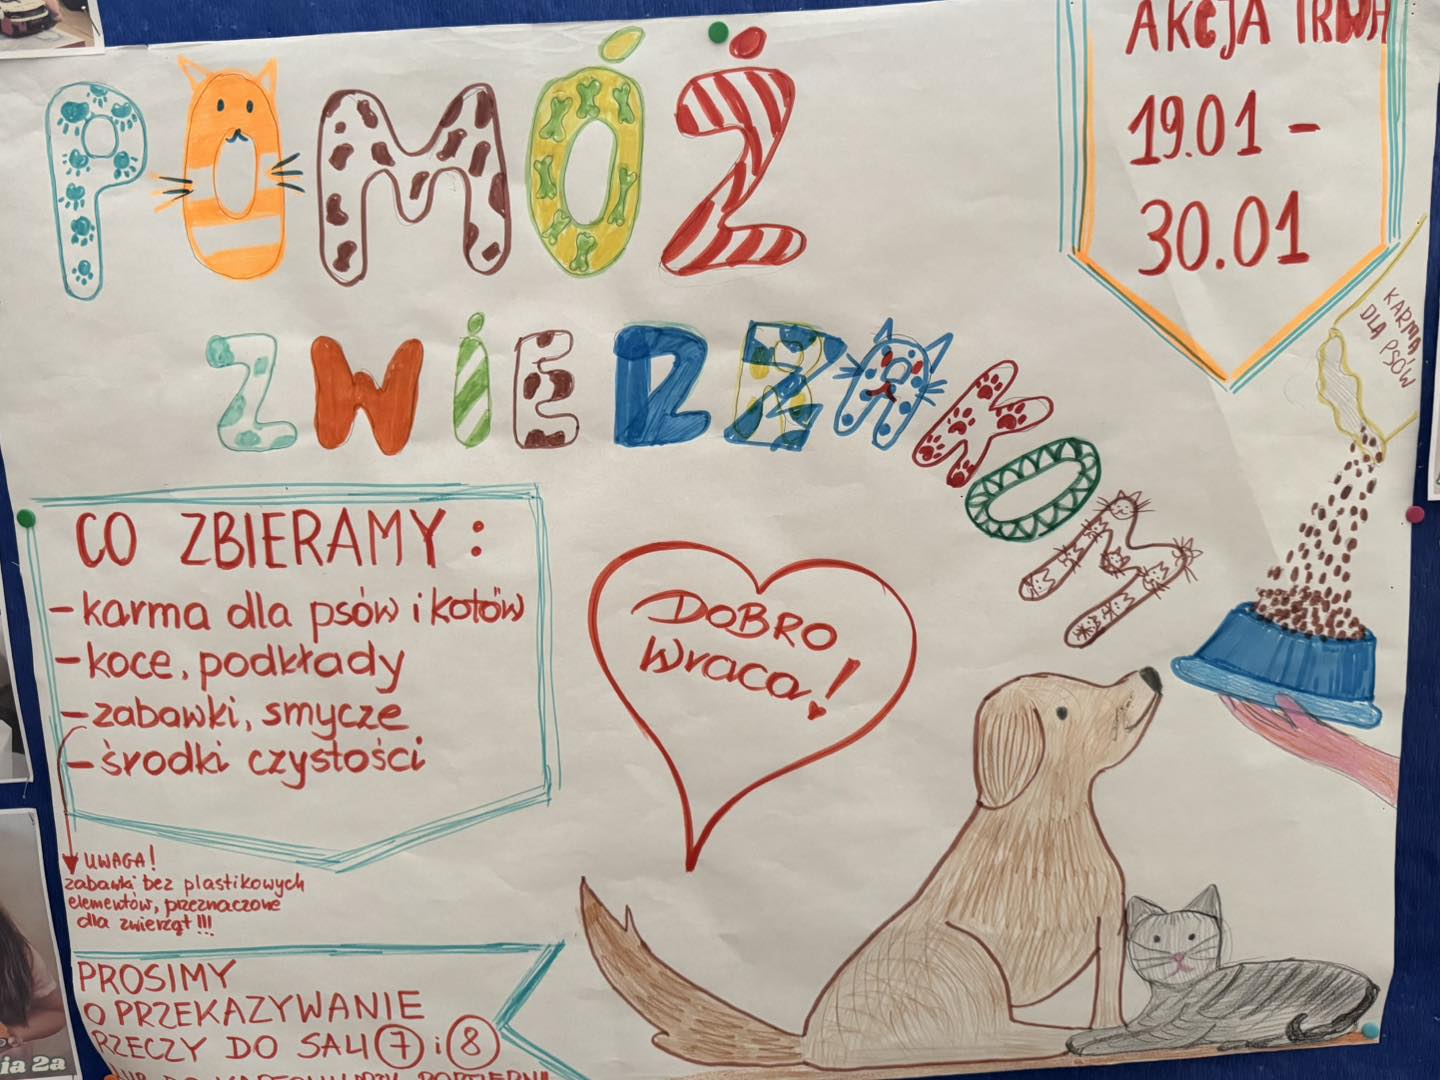 POMÓŻ
ZWIERZAKOM
AKCJA TRWA
19.01 -
30.01
KARMA
DLA PSÓW
CO ZBIERAMY:
- karma dla psów i kotów
- koce, podkłady
- zabawki, smycze
- środki czystości
DOBRO
wraca!
UWAGA!
zabawki bez plastikowych
elementów, przeznaczone
dla zwierząt!!!
PROSIMY
O PRZEKAZYWANIE
RZECZY DO SALI 7 i 8
ia 2a